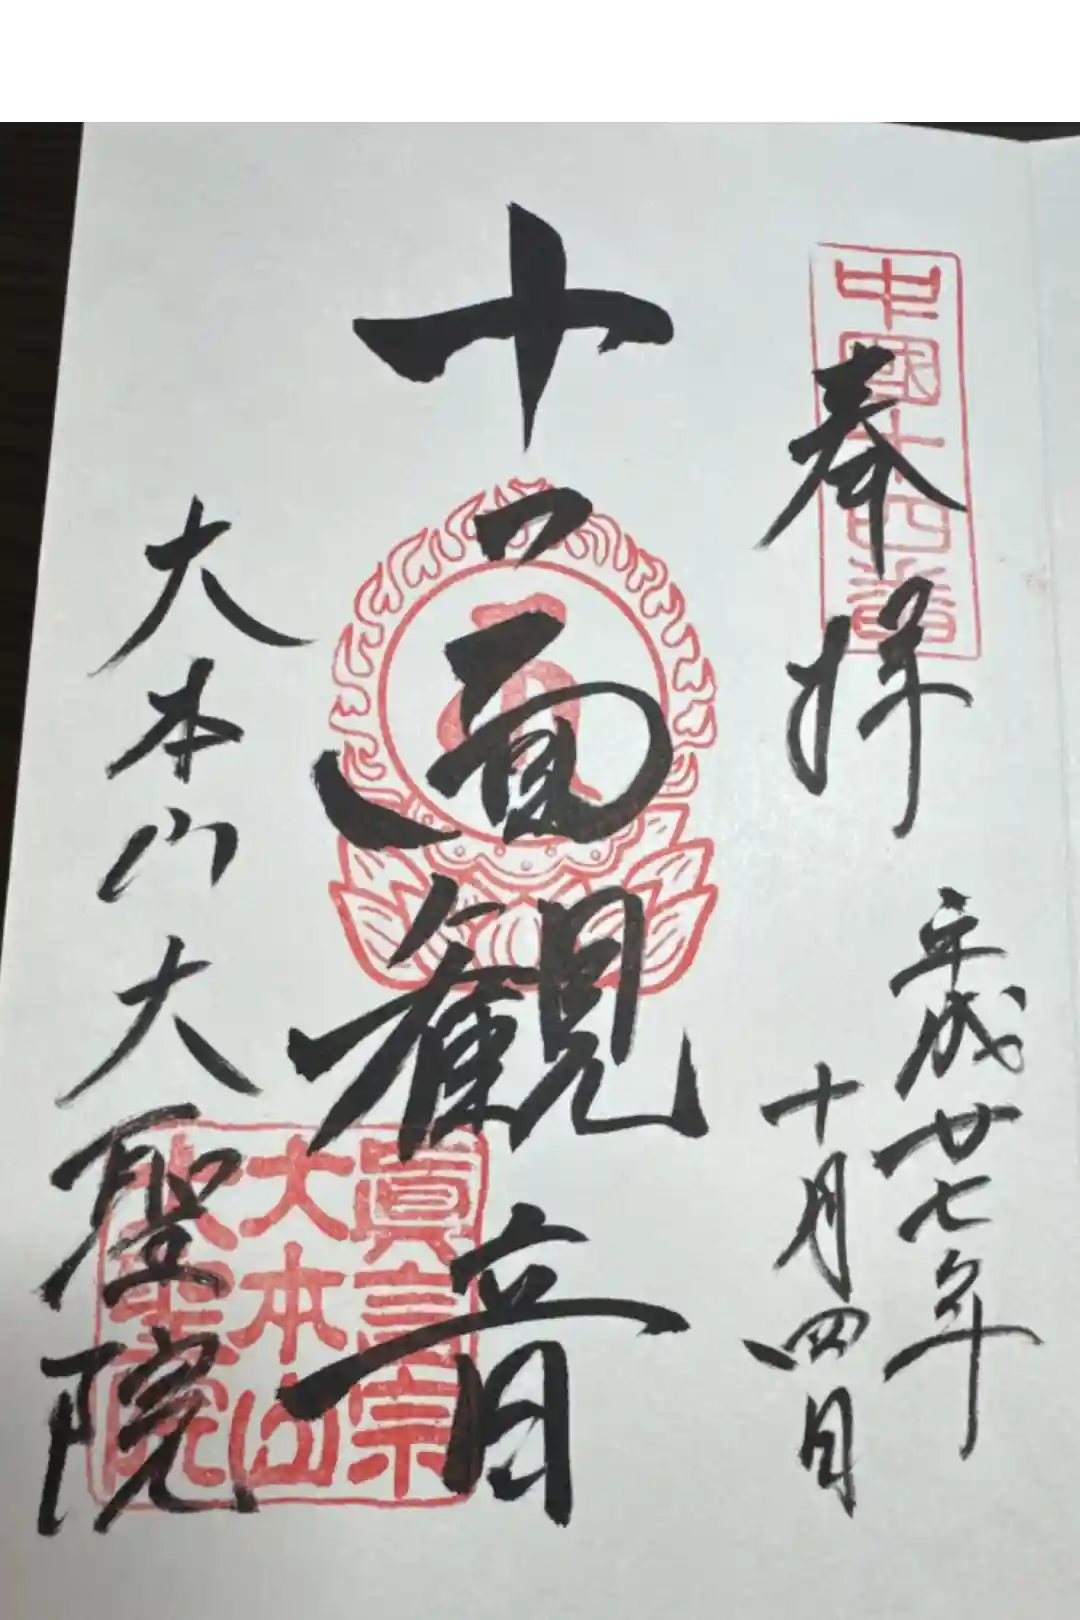 中國十四番
奉拝
平成廿七年
十月四日
十一面観音
大本山大聖院
眞言宗
大本山
大聖院